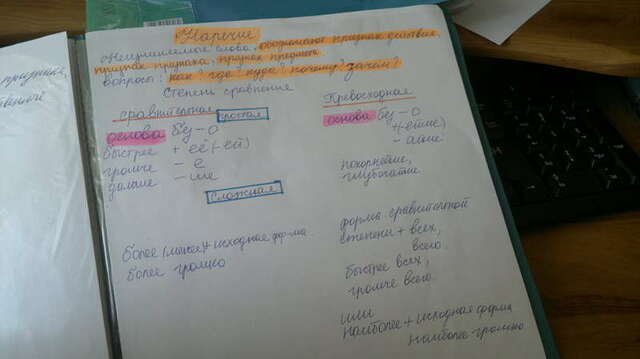 Наречие
Неизменяемые слова, обозначают признак действия,
признак признака, признак предмета
вопросы: как? где? куда? почему? зачем?
Степени сравнения
сравнительная
простая
основа без -о
быстрее + ее (-ей)
громче - е
дальше - ше
Превосходная
основа без -о
+(-ейше)
- айше
покорнейше,
глубочайше
сложная
более (менее) + исходная форма
более громко
форма сравнительной
степени + всех,
всего
быстрее всех,
громче всего.
или
наиболее + исходная форма
наиболее громко